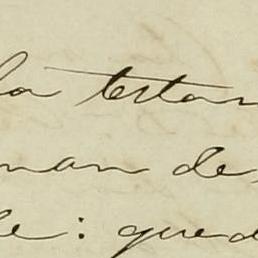 la testan
man de
le: qued